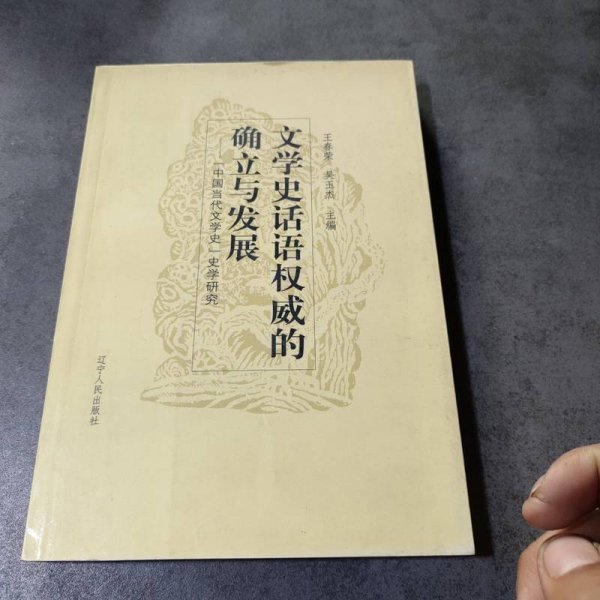 王春荣 吴玉杰 主编
文学史话语权威的
确立与发展
「中国当代文学史」史学研究
辽宁人民出版社